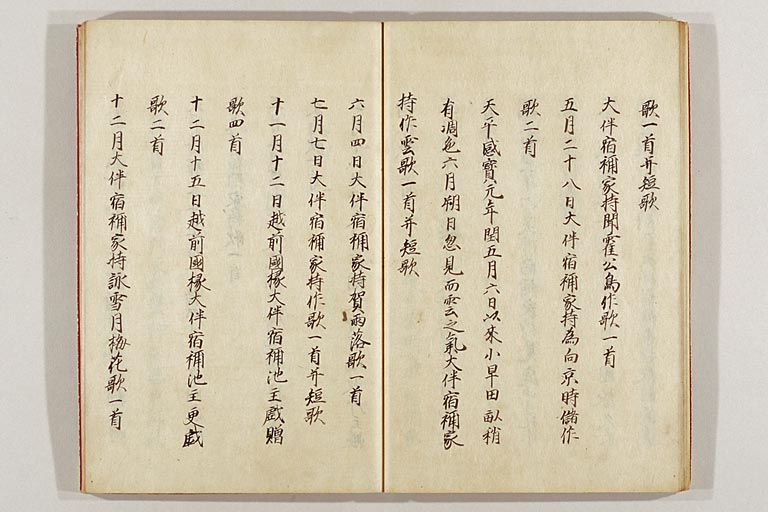 歌一首并短歌
大伴宿祢家持聞霍公鳥作歌一首
五月二十八日大伴宿祢家持為向京時儲作
歌二首
天平感寳元年閏五月六日以来小旱田畝稍
有凋色六月朔日忽見雨雲之氣大伴宿祢家
持作雲歌一首并短歌
六月四日大伴宿祢家持賀雨落歌一首
七月七日大伴宿祢家持作歌一首并短歌
十一月十二日越前國掾大伴宿祢池主戯贈
歌四首
十二月十五日越前國掾大伴宿祢池主更戯
歌二首
十二月大伴宿祢家持詠雪月梅花歌一首